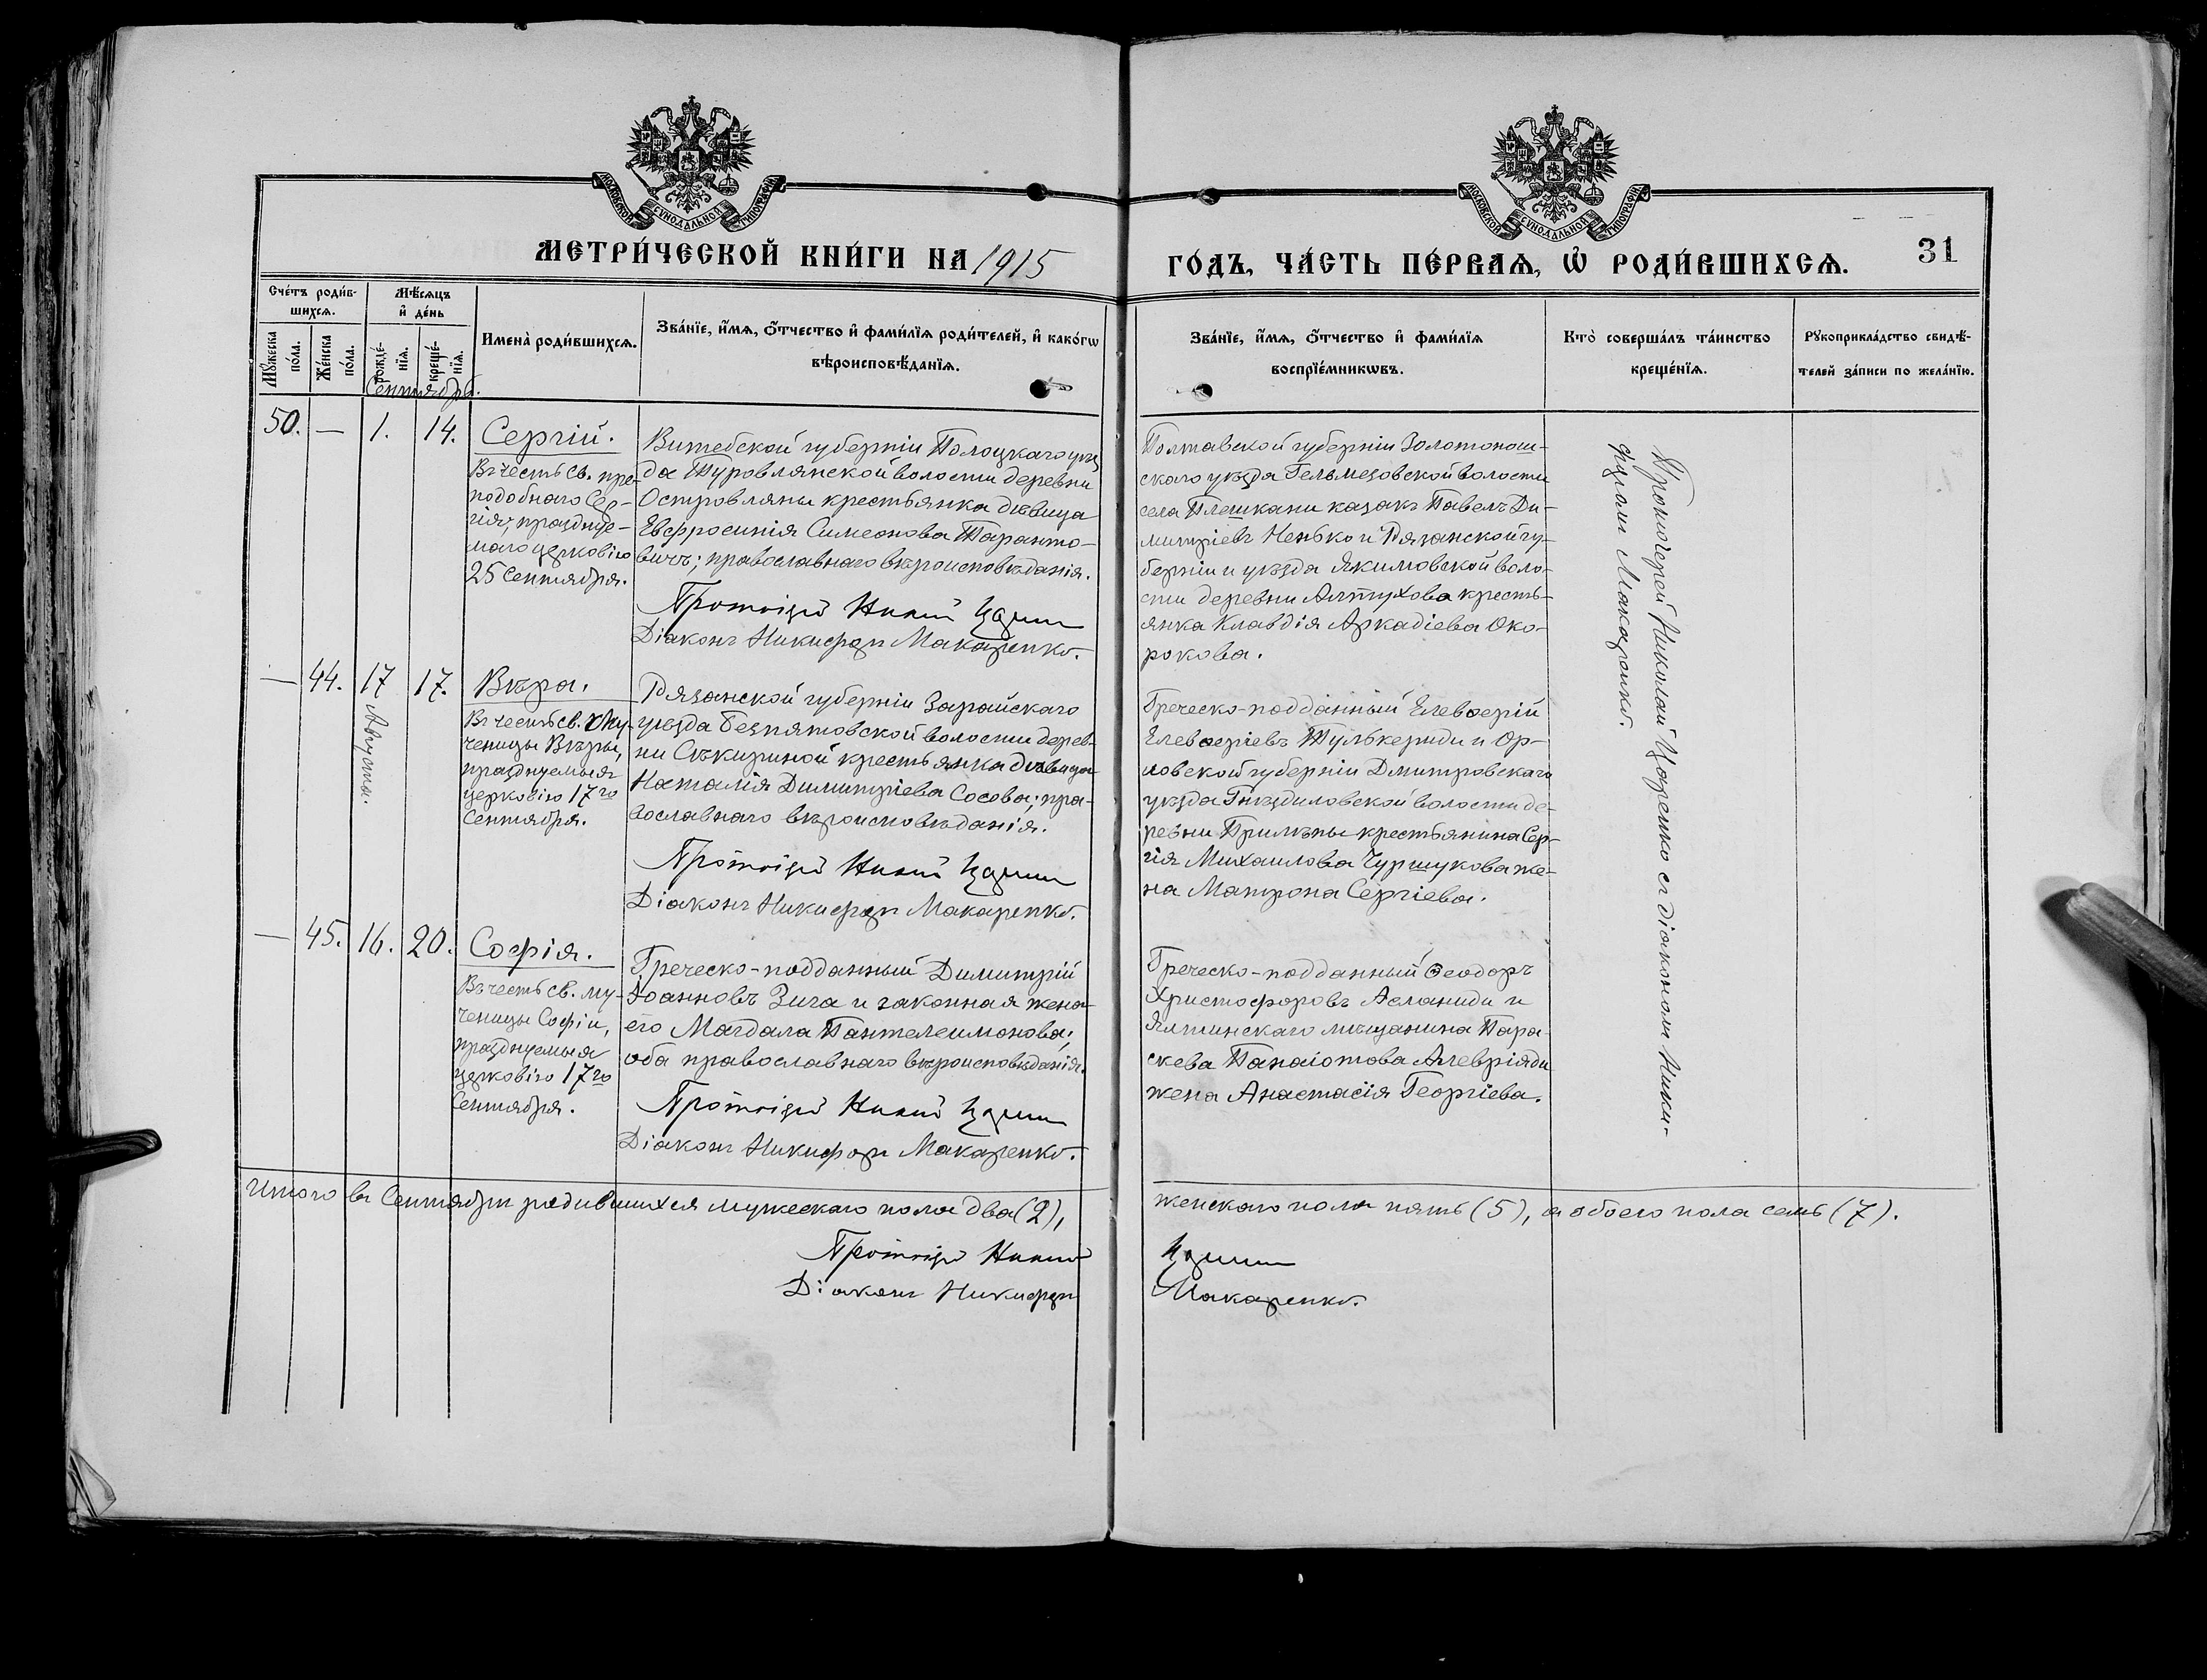 МОСКОВСКОЙ СѴНОДАЛЬНОЙ ТИПОГРАФІИ
МОСКОВСКОЙ СѴНОДАЛЬНОЙ ТИПОГРАФІИ
МЕТРИ́ЧЕСКОЙ КНИ́ГИ НА 1915
ГО́ДЪ, ЧА́СТЬ ПЕ́РВАѦ, Ѡ҆ РОДИ́ВШИХСѦ.
31
Сче́тъ роди́в-
шихсѧ.
Мꙋ́жеска
по́ла.
Же́нска
по́ла.
Мѣ́сѧцъ
и҆ де́нь
рожде́-
нїѧ.
креще́-
нїѧ.
Имена̀ роди́вшихсѧ.
Зва́нїе, и҆́мѧ, ѻ҆́тчество и҆ фами́лїѧ роди́телей, и҆ како́гѡ
вѣроисповѣ́данїѧ.
Зва́нїе, и҆́мѧ, ѻ҆́тчество и҆ фами́лїѧ
воспрїе́мникѡвъ.
Кто̀ соверша́лъ та́инство
креще́нїѧ.
Рꙋкоприкла́дство свидѣ́-
телей за́писи по жела́нїю.
Сентябрь.
50. — 1. 14.
Сергій.
Въ честь св. пре-
подобнаго Сер-
гія, праздnуе-
маго церковію
25 Сентября.
Витебской губерніи Полоцкаго уѣз-
да Туровлянской волости деревни
Островляны крестьянка дѣвица
Евфросинія Симеонова Таранто-
вичъ; православнаго вѣроисповѣданія.
Діаконъ Никифоръ Макаренко.
Полтавской губерніи Золотонош-
скаго уѣзда Гельмязовской волости
села Плешкани казакъ Павелъ Ди-
митріевъ Ненько и Рязанской гу-
берніи и уѣзда Якимовской воло-
сти деревни Алтухова кресть-
янка Клавдія Аркадіева Око-
рокова.
Протоіерей Николай Царенко съ діакономъ Ники-
форомъ Макаренко.
— 44. 17 17.
Августа.
Вѣра.
Въ честь св. Му-
ченицы Вѣры,
празднуемыя
церковію 17го
Сентября.
Рязанской губерніи Зарайскаго
уѣзда Безпятовской волости дерев-
ни Сѣкириной крестьянка дѣвица
Наталія Димитріева Сосова; пра-
вославнаго вѣроисповѣданія.
Діаконъ Никифоръ Макаренко.
Греческо-подданный Елевѳерій
Елевѳеріевъ Тулькериди и Ор-
ловской губерніи Дмитровскаго
уѣзда Гнѣздиловской волости де-
ревни Прилѣпы крестьянина Сер-
гія Михаилова Чуршукова же-
на Матрона Сергіева.
— 45. 16. 20.
Софія.
Въ честь св. му-
ченицы Софіи,
празднуемыя
церковію 17го
Сентября.
Греческо-подданный Димитрій
Іоанновъ Зига и законная жена
его Магдала Пантелеимонова;
оба православнаго вѣроисповѣданія.
Діаконъ Никифоръ Макаренко.
Греческо-подданный Ѳеодоръ
Христофоровъ Асланиди и
Ялтинскаго мѣщанина Пара-
скева Панаіотова Алевріяди
жена Анастасія Георгіева.
Итого въ Сентябрѣ родившихся мужескаго пола два (2),
женскаго пола пять (5), а обоего пола семь (7).
Діаконъ Никифоръ
Макаренко.